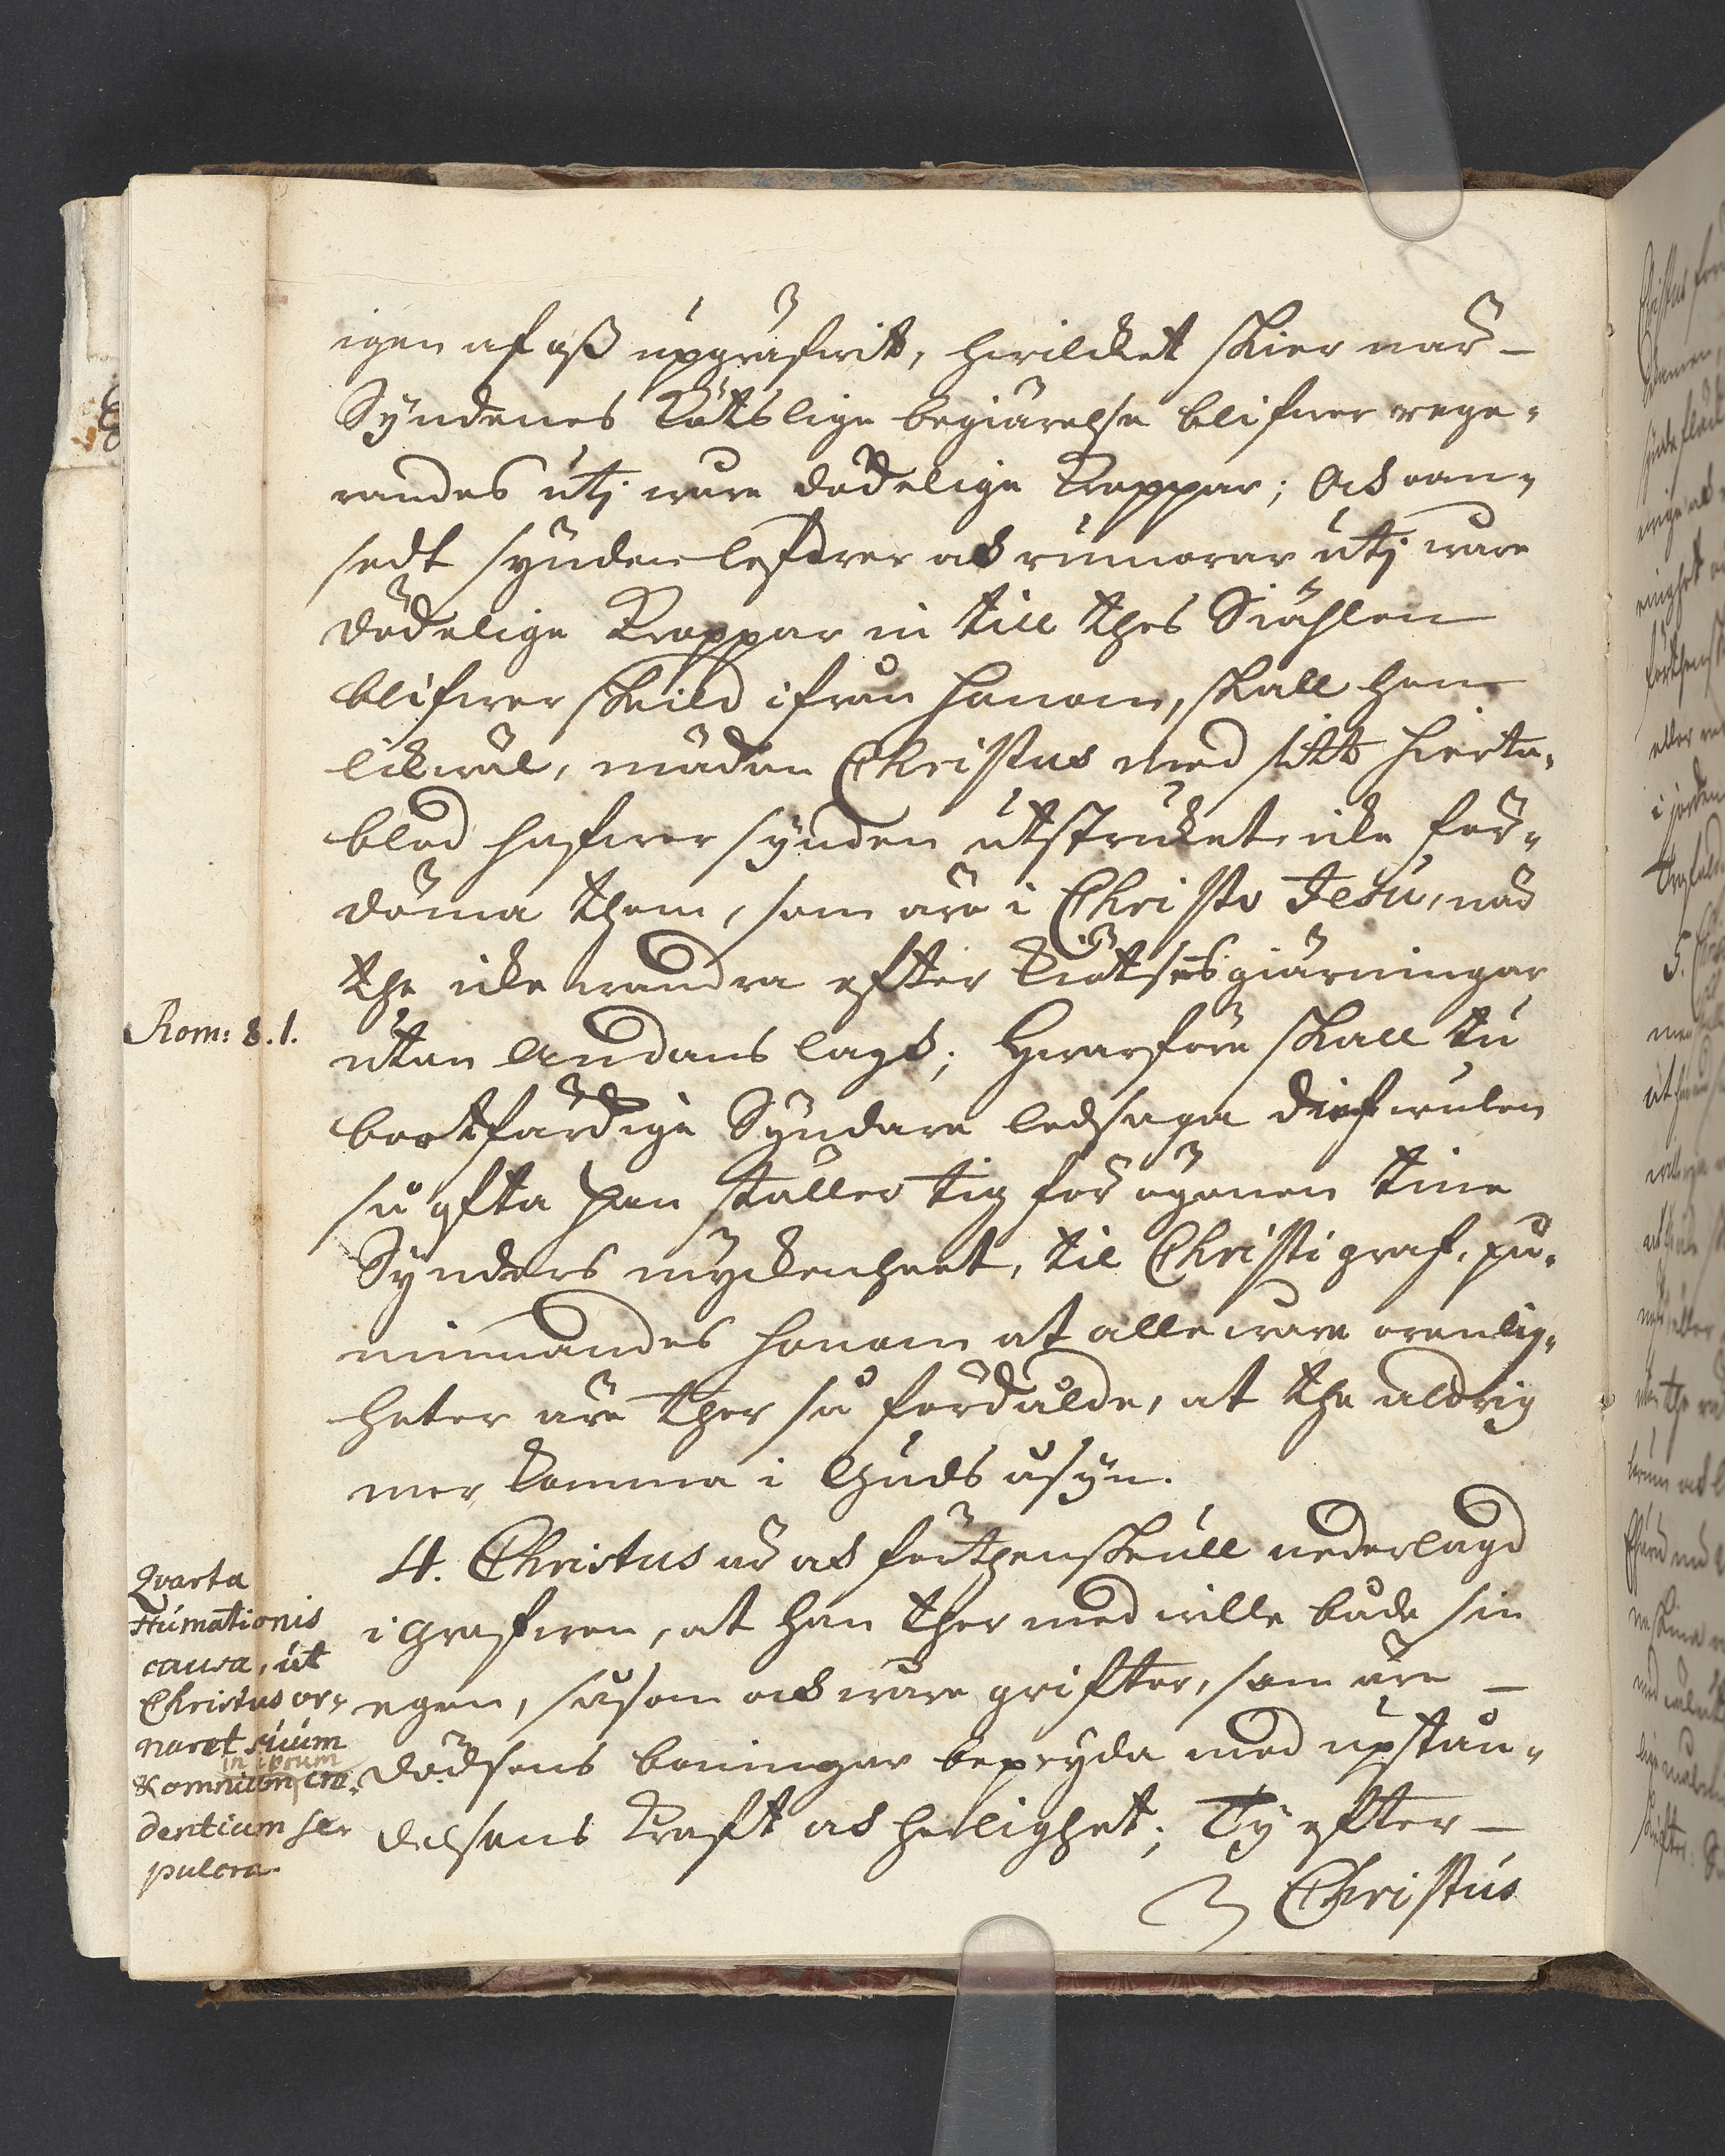 igen af oß upgräfwit, hwilcket skier när
Syndenes kötslige begiärelse blifwer rege-
randes utj wåra dödelige kroppar; Och oan-
sedt synden lefwer och rumorar utj wåra
dödelige kroppar in till thes Siählen
blifwer skild ifrån honom, skall hon
likwäl, mädan Christus med sitt hierta-
blod hafwer synden utstruket icke för-
döma them, som äre i Christo Jesu, när
the icke wandra efter kiötsens giärningar
Rom: 8.1.
utan Andans lagh; Hwarföre skall tu
bootfärdige Syndare ledsaga diefwulen
så ofta han ställer tig för ögonen tine
Synders myckenheet, til Christi graf, på-
minnandes honom at alle wåra orenlig-
heter äre ther så fördålde, at the aldrig
mer komma i Guds åsyn.
4. Christus är och förthenskull nederlagd
i grafwen, at han ther med wille både sin
egen, såsom och wåra grifter, som äre
dödsens boningar bepryda med upstån-
delsens kraft och helighet; Ty efter
Christus
Qvarta
Humationis
causa, ut
Christus or-
naret suum
in ipsum
& omnium cre-
dentium se-
pulcra.